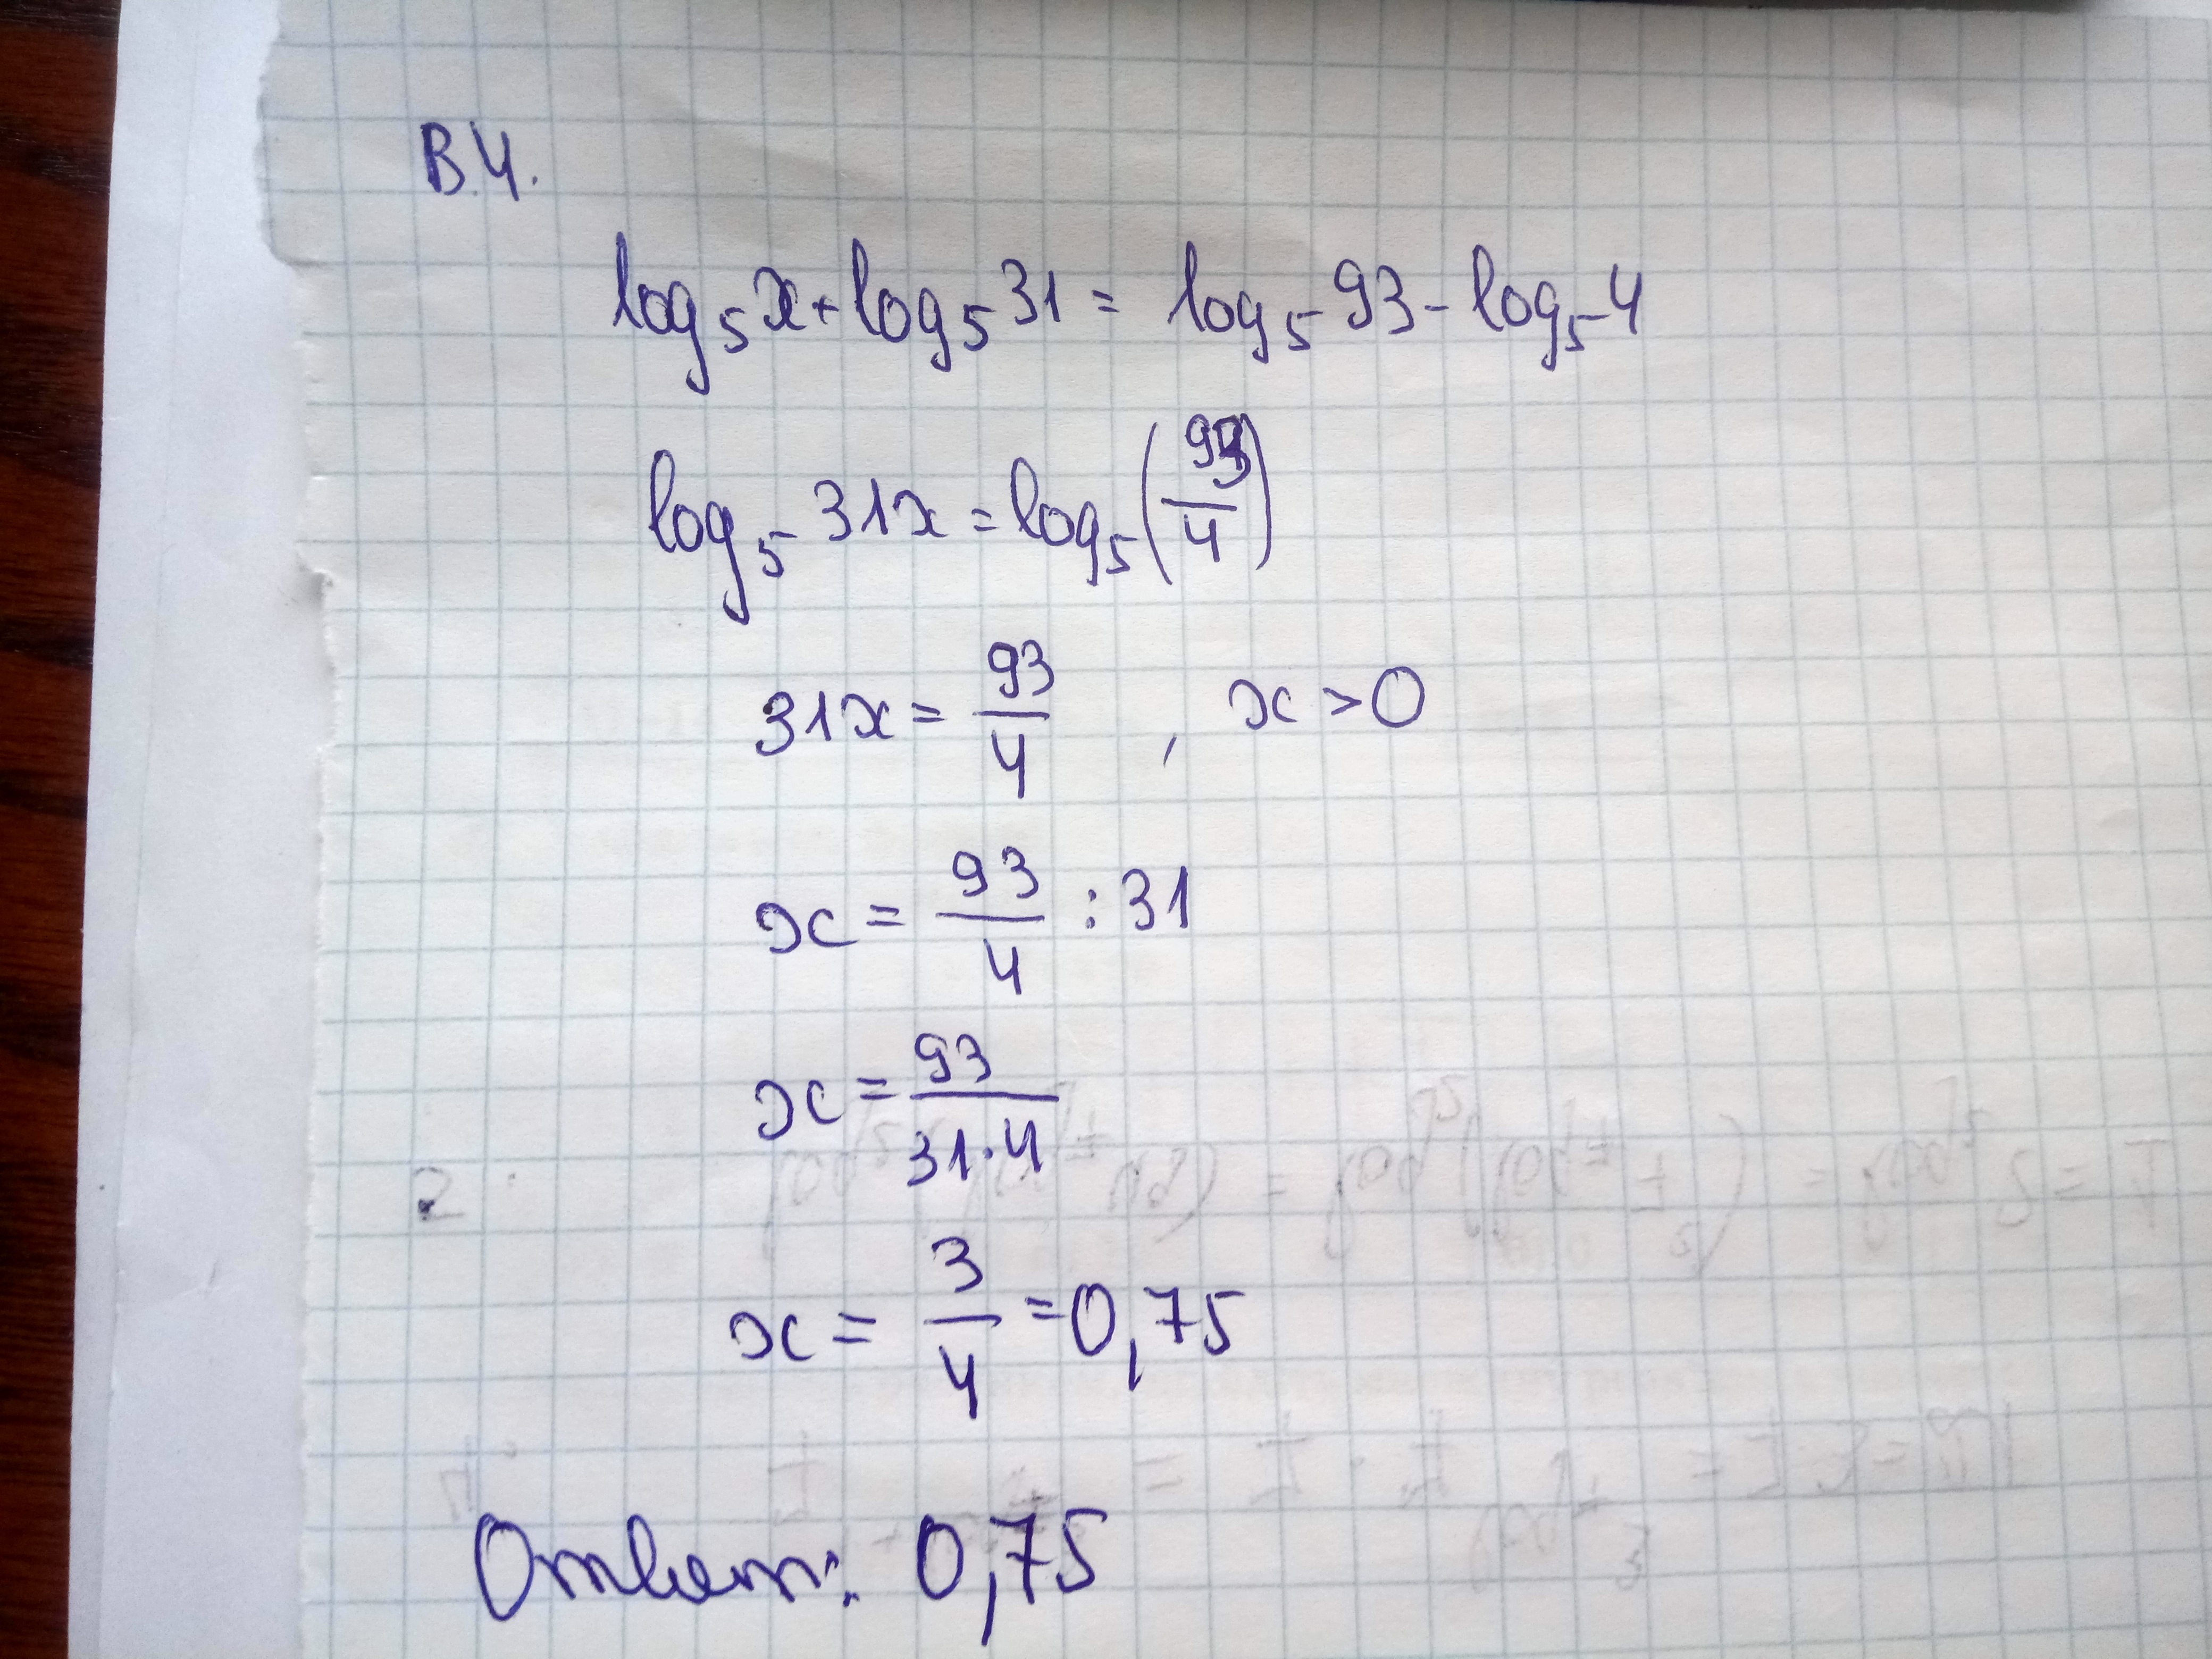 В.4.
log₅x + log₅31 = log₅93 - log₅4
log₅31x = log₅(93/4)
31x = 93/4 , x > 0
x = 93/4 : 31
x = 93/(31·4)
x = 3/4 = 0,75
Ответ: 0,75